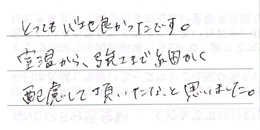 とっても心地良かったです。
室温から、強さまで細かく
配慮して頂いたなと思いました。